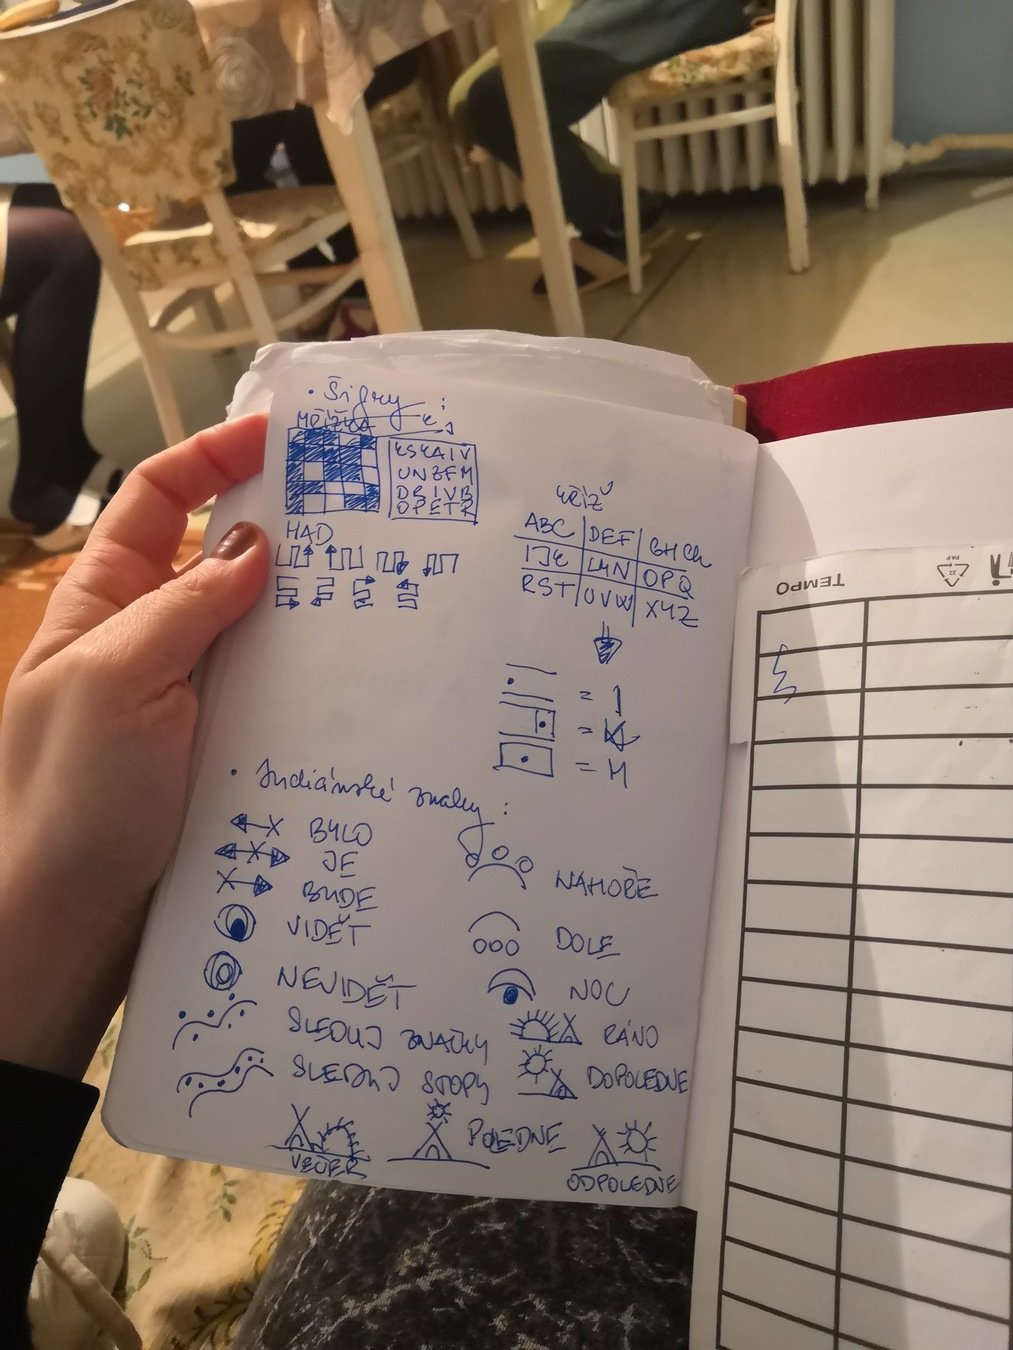 • Šifry:
MŘÍŽKA
KSKAIV
UNZFM
DBIVB
OPETR
HAD
KŘÍŽ
ABC DEF GHCh
IJK LMN OPQ
RST UVW XYZ
= J
= K
= M
• Indiánské značky:
BYLO
JE
BUDE
VIDĚT
NEVIDĚT
SLEDUJ ZNAČKY
SLEDUJ STOPY
NAHOŘE
DOLE
NOC
RÁNO
DOPOLEDNE
VEČER
POLEDNE
ODPOLEDNE
TEMPO
22
PAP